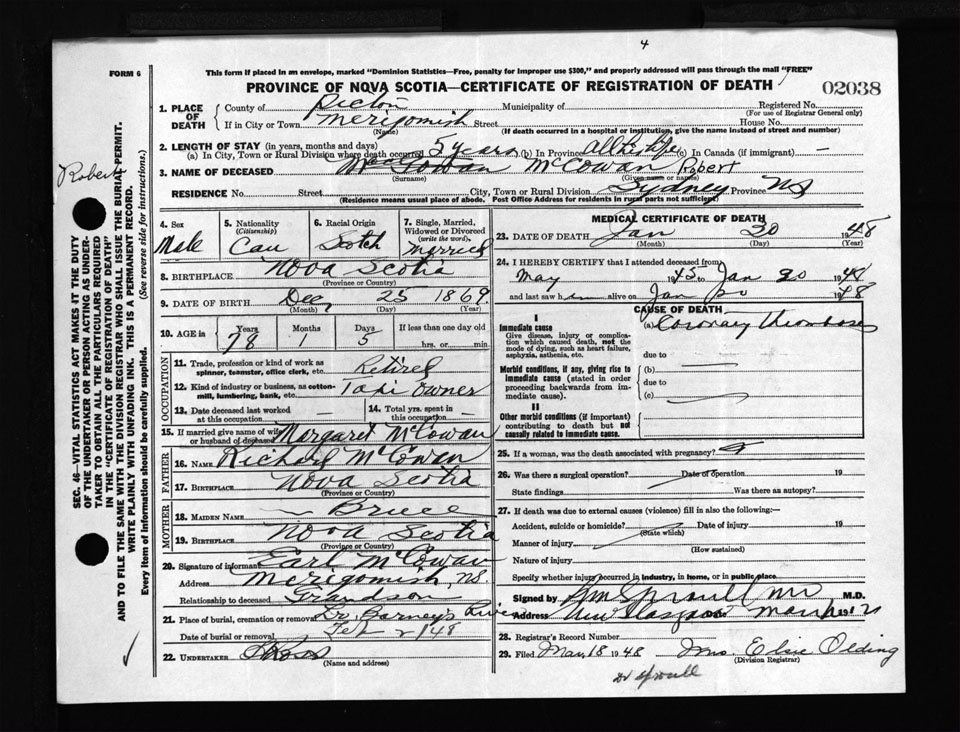 4
FORM 6
This form if placed in an envelope, marked "Dominion Statistics—Free, penalty for improper use $300," and properly addressed will pass through the mail "FREE"
PROVINCE OF NOVA SCOTIA—CERTIFICATE OF REGISTRATION OF DEATH
02038
1. PLACE OF DEATH
County of Pictou Municipality of Registered No.
(For use of Registrar General only)
If in City or Town Merigomish Street House No.
(Name) (If death occurred in a hospital or institution, give the name instead of street and number)
2. LENGTH OF STAY (in years, months and days)
(a) In City, Town or Rural Division where death occurred 5 years (b) In Province all his life (c) In Canada (if immigrant) —
3. NAME OF DECEASED McCowan Robert
(Surname) (Given name or names)
RESIDENCE No. Street City, Town or Rural Division Sydney Province NS
(Residence means usual place of abode. Post Office Address for residents in rural parts not sufficient)
4. Sex Male
5. Nationality (Citizenship) Can
6. Racial Origin Scotch
7. Single, Married, Widowed or Divorced (write the word) Married
8. BIRTHPLACE Nova Scotia
(Province or Country)
9. DATE OF BIRTH Dec 25 1869
(Month) (Day) (Year)
10. AGE in Years Months Days If less than one day old
78 1 5 hrs. or min.
OCCUPATION
11. Trade, profession or kind of work as spinner, teamster, office clerk, etc. Retired
12. Kind of industry or business, as cotton-mill, lumbering, bank, etc. Taxi Owner
13. Date deceased last worked at this occupation —
14. Total yrs. spent in this occupation —
15. If married give name of wife or husband of deceased Margaret McCowan
FATHER
16. NAME Richard McCowan
17. BIRTHPLACE Nova Scotia
(Province or Country)
MOTHER
18. MAIDEN NAME — Bruce
19. BIRTHPLACE Nova Scotia
(Province or Country)
20. Signature of informant Earl McCowan
Address Merigomish, N.S.
Relationship to deceased Grandson
21. Place of burial, cremation or removal Barney's River
Date of burial or removal Feb 2/48
22. UNDERTAKER
(Name and address)
MEDICAL CERTIFICATE OF DEATH
23. DATE OF DEATH Jan 30 1948
(Month) (Day) (Year)
24. I HEREBY CERTIFY that I attended deceased from
May 1945 to Jan 30 1948
and last saw him alive on Jan 1948
CAUSE OF DEATH
I
Immediate cause
Give disease, injury or complication which caused death, not the mode of dying, such as heart failure, asphyxia, asthenia, etc.
(a) Coronary Thrombosis
due to
Morbid conditions, if any, giving rise to immediate cause (stated in order proceeding backwards from immediate cause).
(b)
due to
(c)
II
Other morbid conditions (if important) contributing to death but not causally related to immediate cause.
25. If a woman, was the death associated with pregnancy?
26. Was there a surgical operation? Date of operation 19
State findings Was there an autopsy?
27. If death was due to external causes (violence) fill in also the following:—
Accident, suicide or homicide? Date of injury 19
(State which)
Manner of injury
(How sustained)
Nature of injury
Specify whether injury occurred in industry, in home, or in public place
Signed by Wm Sproull MD M.D.
Address New Glasgow Date March 19
28. Registrar's Record Number
29. Filed Mar 18 1948 Mrs. Elsie Olding
(Division Registrar)
Dr Sproull
Robert
SEC. 46—VITAL STATISTICS ACT MAKES IT THE DUTY OF THE UNDERTAKER OR PERSON ACTING AS UNDERTAKER TO OBTAIN ALL THE PARTICULARS REQUIRED IN THE "CERTIFICATE OF REGISTRATION OF DEATH" AND TO FILE THE SAME WITH THE DIVISION REGISTRAR WHO SHALL ISSUE THE BURIAL PERMIT.
WRITE PLAINLY WITH UNFADING INK. THIS IS A PERMANENT RECORD.
Every item of information should be carefully supplied. (See reverse side for instructions.)